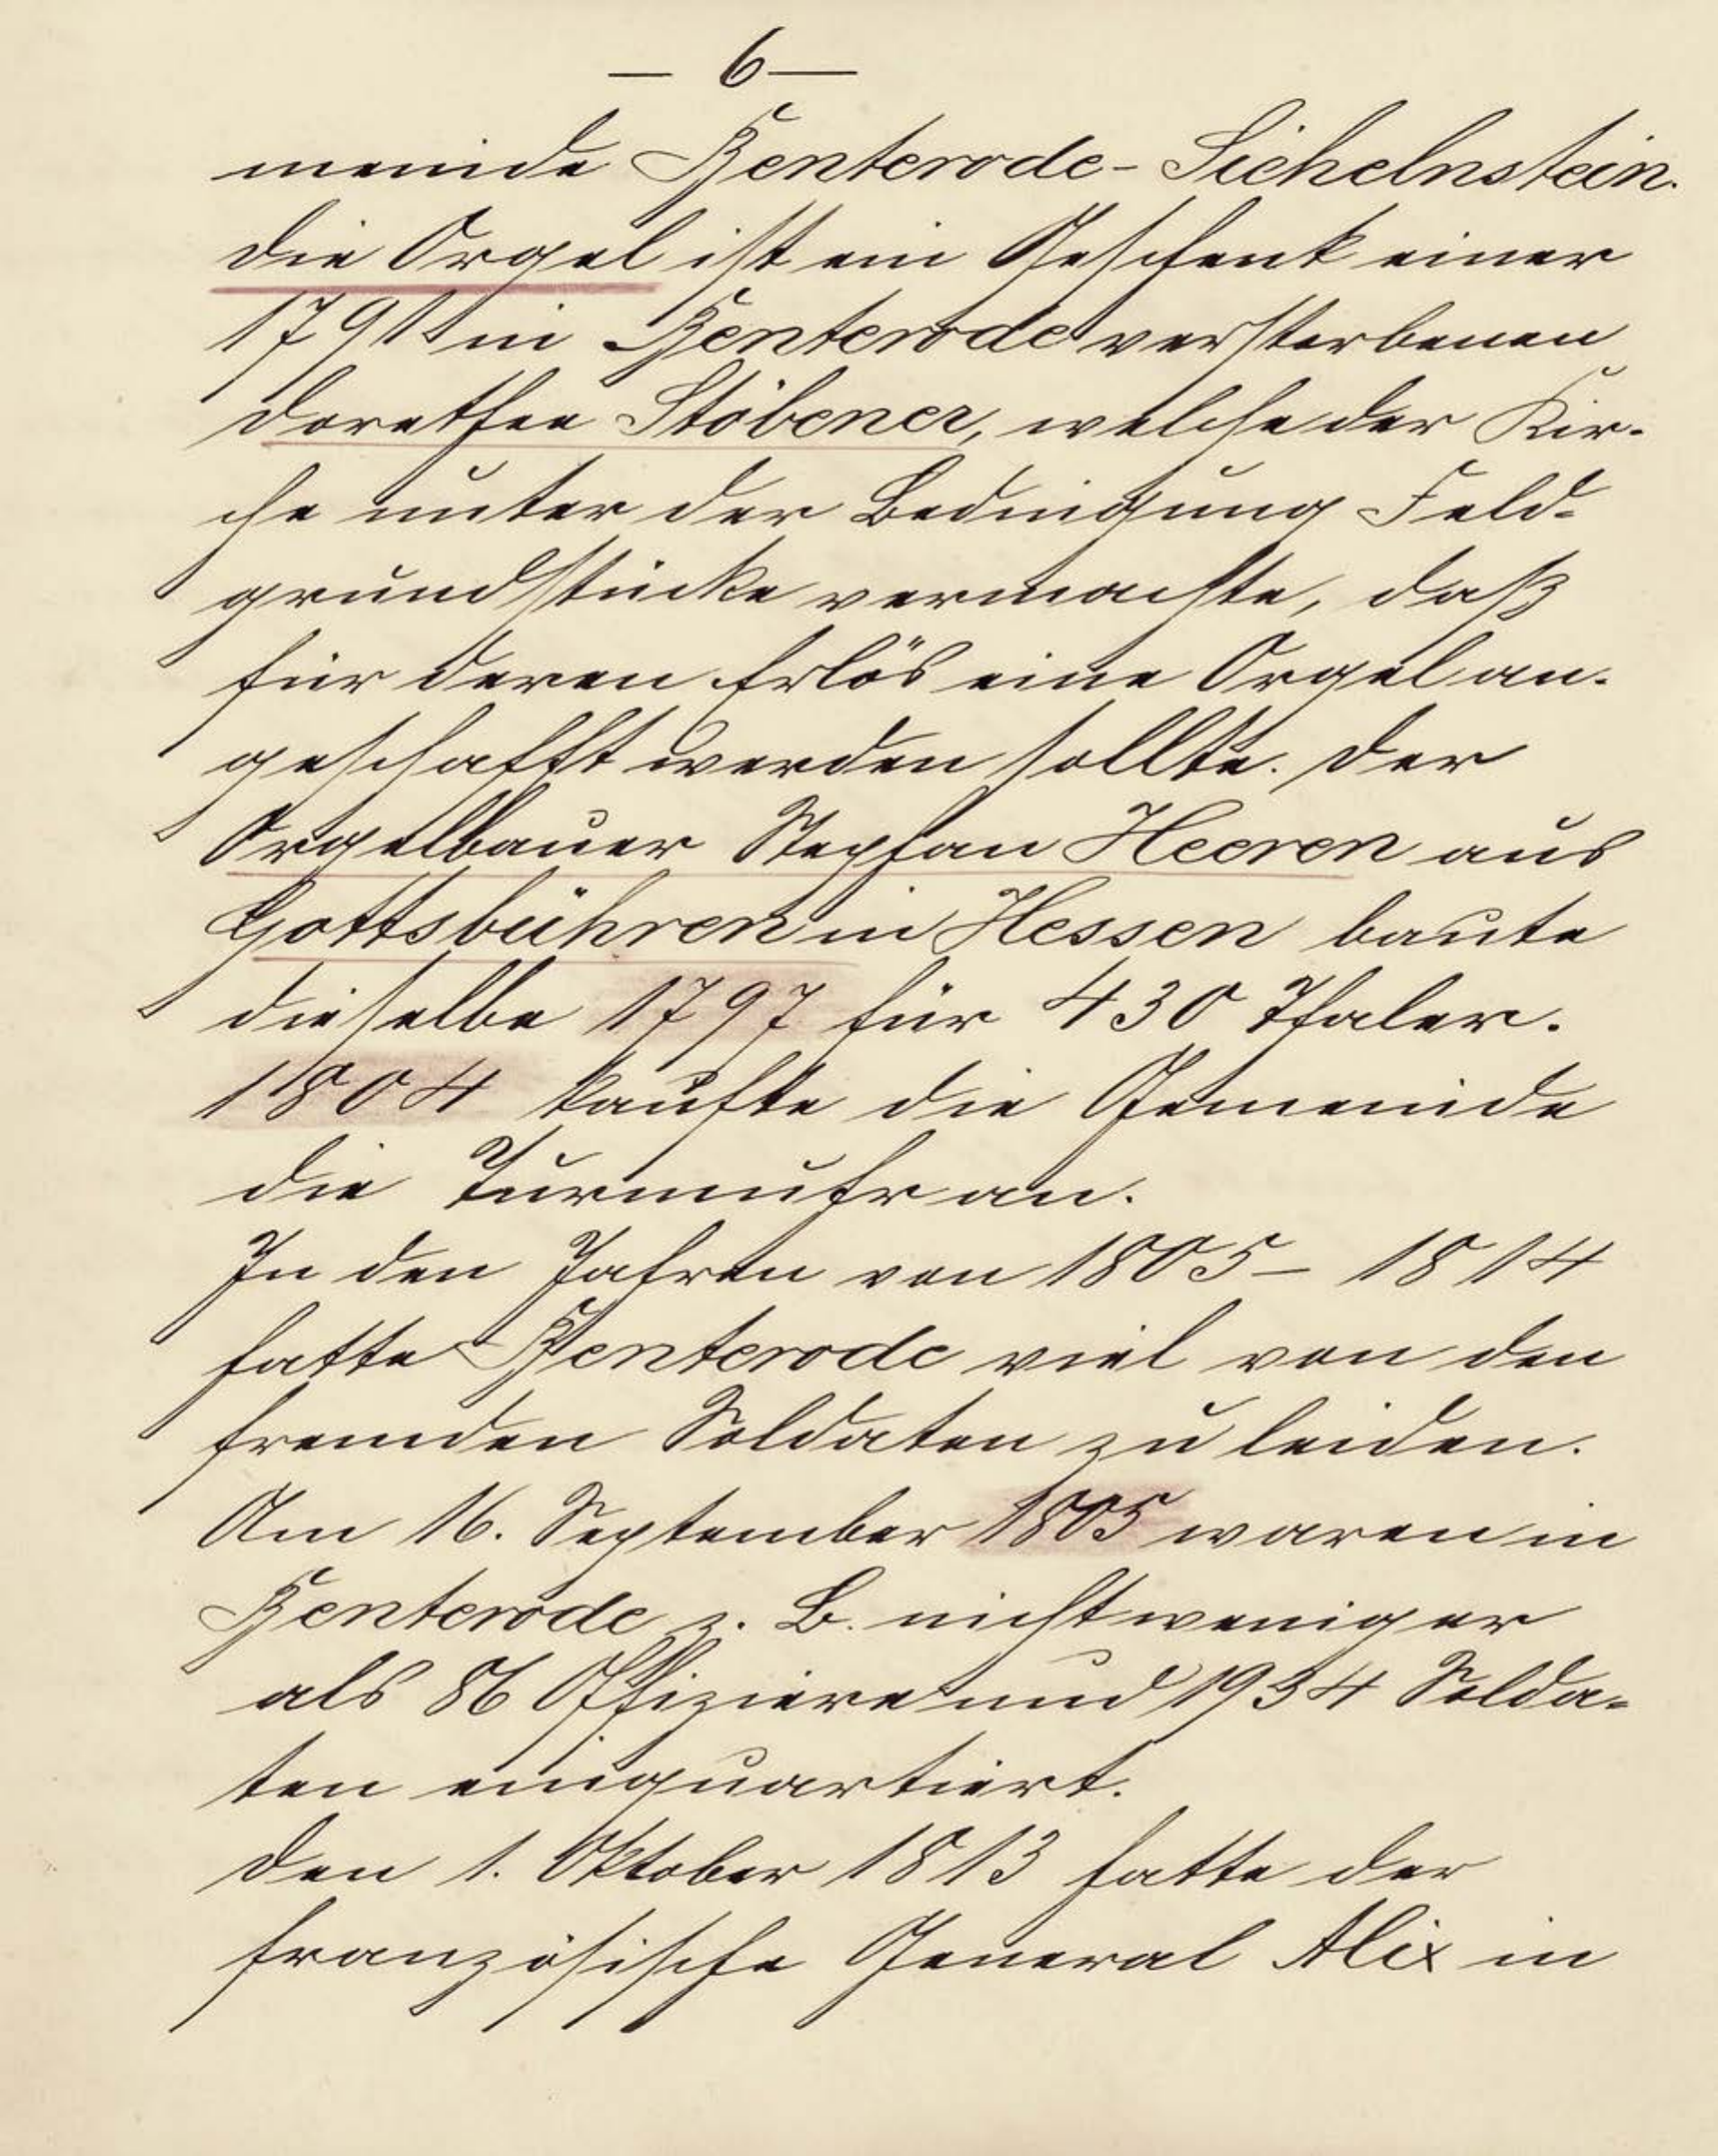 — 6 —
meinde Benterode-Sichelnstein.
Die Orgel ist ein Geschenk einer
1791 in Benterode verstorbenen
Dorothee Stöbener, welche der Kir-
che unter der Bedingung Feld-
grundstücke vermachte, daß
für deren Erlös eine Orgel an-
geschafft werden sollte. Der
Orgelbauer Stephan Heeren aus
Gottsbühren in Hessen baute
dieselbe 1797 für 430 Thaler.
1804 kaufte die Gemeinde
die Turmuhr an.
In den Jahren von 1805 – 1814
hatte Benterode viel von den
fremden Soldaten zu leiden.
Am 16. September 1805 waren in
Benterode z. B. nicht weniger
als 86 Offiziere und 1934 Solda-
ten einquartiert.
Den 1. Oktober 1813 hatte der
französische General Alix in